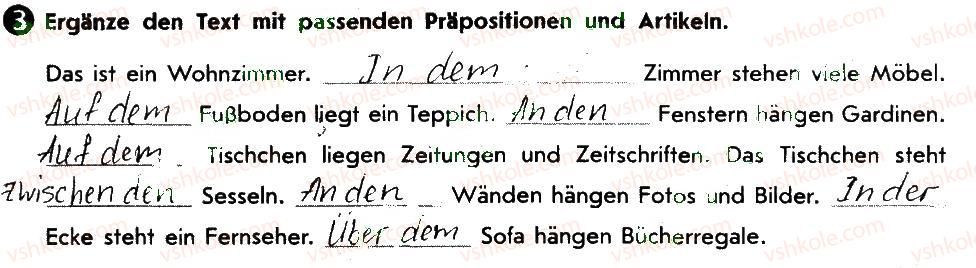 3 Ergänze den Text mit passenden Präpositionen und Artikeln.
Das ist ein Wohnzimmer. In dem Zimmer stehen viele Möbel.
Auf dem Fußboden liegt ein Teppich. An den Fenstern hängen Gardinen.
Auf dem Tischchen liegen Zeitungen und Zeitschriften. Das Tischchen steht
Zwischen den Sesseln. An den Wänden hängen Fotos und Bilder. In der
Ecke steht ein Fernseher. Über dem Sofa hängen Bücherregale.